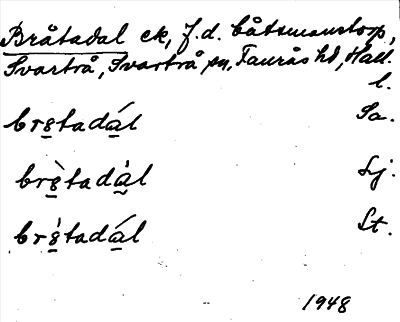 Bråtadal ek, f.d. båtsmanstorp,
Svartrå, Svartrå sn, Faurås hd, Hall.
l.
br8tadál Sa.
br8̀tadàl Sj.
br8́tadál St.
1948